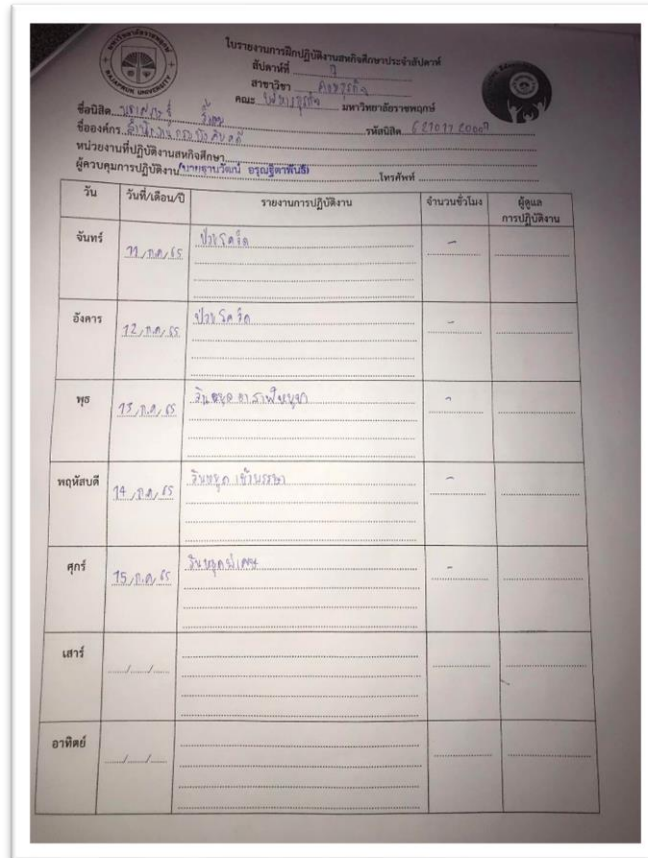 มหาวิทยาลัยราชพฤกษ์
RAJAPRUK UNIVERSITY
ใบรายงานการฝึกปฏิบัติงานสหกิจศึกษาประจำสัปดาห์
สัปดาห์ที่
สาขาวิชา คอมธุรกิจ
คณะ บริหารธุรกิจ มหาวิทยาลัยราชพฤกษ์
ชื่อนิสิต รหัสนิสิต
ชื่อองค์กร สำนักงานกรมบังคับคดี
หน่วยงานที่ปฏิบัติงานสหกิจศึกษา
ผู้ควบคุมการปฏิบัติงาน โทรศัพท์
วัน วันที่/เดือน/ปี รายงานการปฏิบัติงาน จำนวนชั่วโมง ผู้ดูแล
การปฏิบัติงาน
จันทร์ 11/ก.ค/65 ป่วยโควิด -
อังคาร 12/ก.ค/65 ป่วยโควิด -
พุธ 13/ก.ค/65 วันหยุด อาสาฬหบูชา -
พฤหัสบดี 14/ก.ค/65 วันหยุด เข้าพรรษา -
ศุกร์ 15/ก.ค/65 วันหยุดพิเศษ -
เสาร์ / /
อาทิตย์ / /